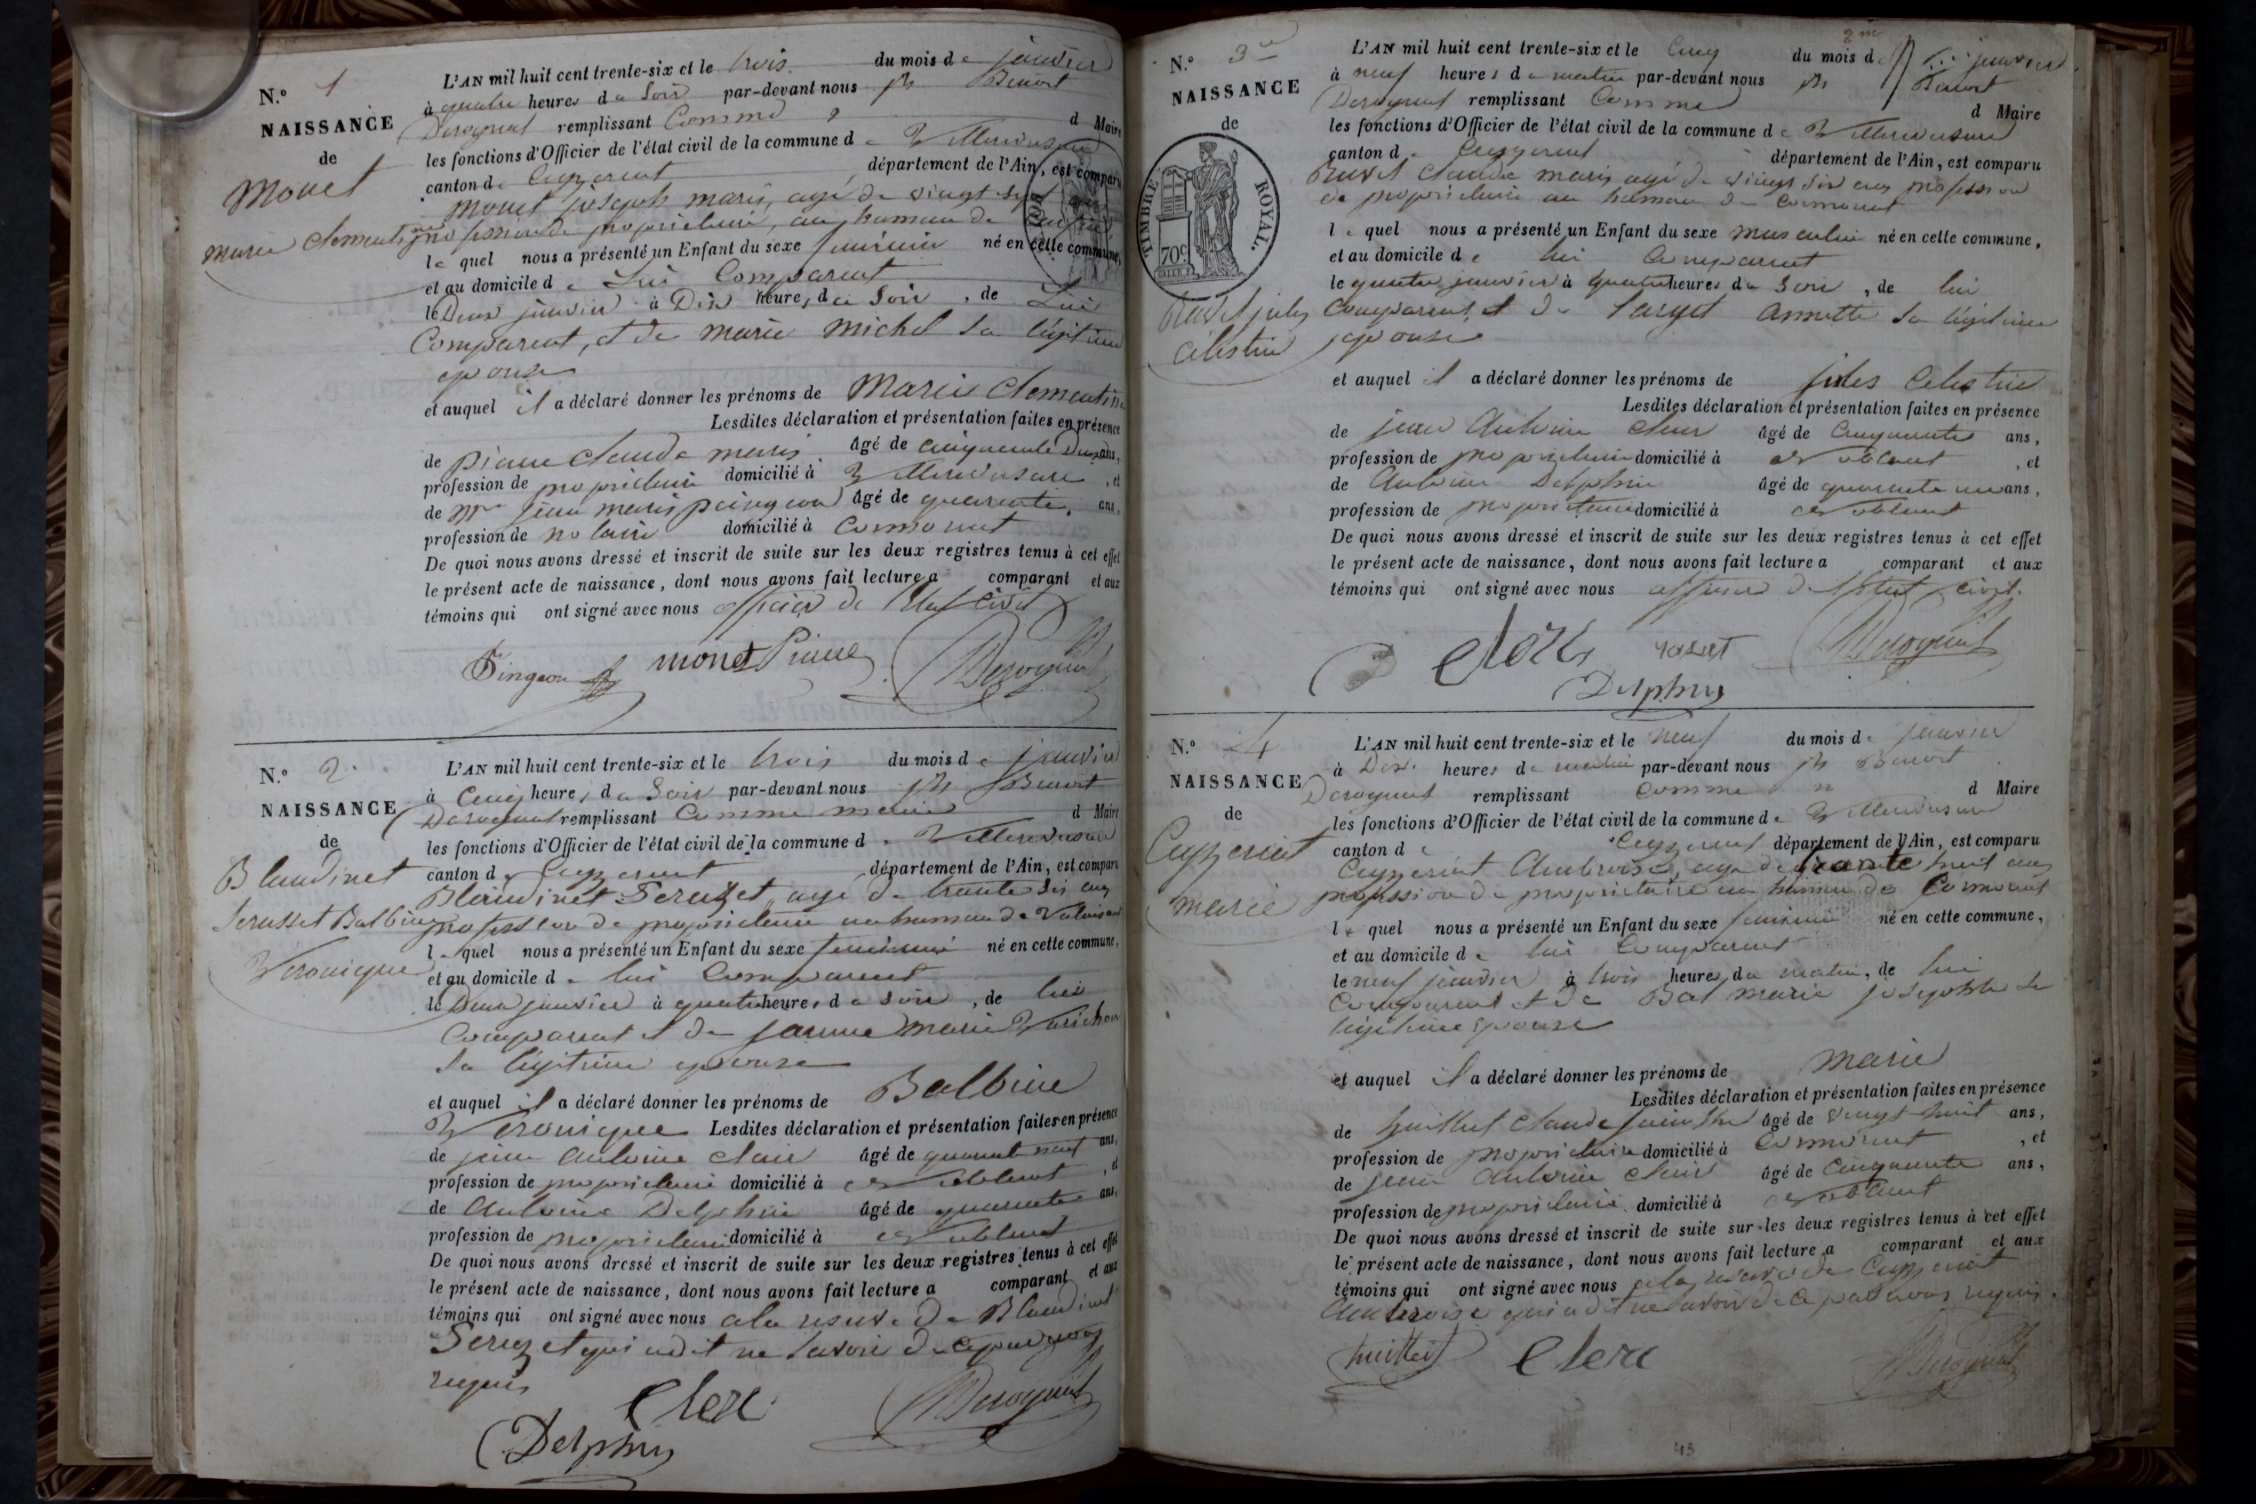 N.º 1
NAISSANCE
de
Monet
marie Clementine
L'AN mil huit cent trente-six et le trois du mois de janvier
à quatre heures du Soir par-devant nous jh Benoit
Derognat remplissant Comme
d Maire
les fonctions d'Officier de l'état civil de la commune de Villereversure
canton de Ceyzeriat département de l'Ain, est comparu
monet joseph marie, agé de vingt sept ans
profession de propriétaire, au hameau de
le quel nous a présenté un Enfant du sexe féminin né en cette commune,
et au domicile de Lui Comparant
le Deux janvier à Dix heures du Soir, de Lui
Comparant, et de marie michel sa légitime
epouse
et auquel il a déclaré donner les prénoms de Marie Clementine
Lesdites déclaration et présentation faites en présence
de pierre claude marie âgé de cinquante Deux ans,
profession de propriétaire domicilié à Villereversure, et
de Mre jean marie pingeon âgé de quarante, ans,
profession de notaire domicilié à Cormorent
De quoi nous avons dressé et inscrit de suite sur les deux registres tenus à cet effet
le présent acte de naissance, dont nous avons fait lecture a comparant et aux
témoins qui ont signé avec nous officier de l'état Civil
Pingeon monet Pierre Derognat
N.º 2
NAISSANCE
de
Blandinet
Serusset Balbine
Veronique
L'AN mil huit cent trente-six et le trois du mois de janvier
à Cinq heures du Soir par-devant nous jh Benoit
Derognat remplissant Comme maire
d Maire
les fonctions d'Officier de l'état civil de la commune de Villereversure
canton de Ceyzeriat département de l'Ain, est comparu
Blandinet Seruzet, agé de trente six ans
profession de propriétaire au hameau de
le quel nous a présenté un Enfant du sexe féminin né en cette commune,
et au domicile de lui Comparant
le Deux janvier à quatre heures du soir, de lui
Comparant et de jeanne marie Varichon
sa légitime epouse
et auquel il a déclaré donner les prénoms de Balbine
Veronique Lesdites déclaration et présentation faites en présence
de jean antoine clair âgé de quarante neuf ans,
profession de propriétaire domicilié à, et
de antoine Delphin âgé de quarante ans,
profession de propriétaire domicilié à
De quoi nous avons dressé et inscrit de suite sur les deux registres tenus à cet effet
le présent acte de naissance, dont nous avons fait lecture a comparant et aux
témoins qui ont signé avec nous a la reserve de Blandinet
Seruzet qui a dit ne savoir de ce par nous
requis
Clerc Derognat
Delphin
N.º 3
NAISSANCE
de
TIMBRE ROYAL.
70c
Ravet jules
Célestin
L'AN mil huit cent trente-six et le Cinq du mois de janvier
à neuf heures du matin par-devant nous jh Benoit
Derognat remplissant Comme
d Maire
les fonctions d'Officier de l'état civil de la commune de Villereversure
canton de Ceyzeriat département de l'Ain, est comparu
Ravet Claude marie agé de vingt six ans profession
de propriétaire au hameau de Cormorent
le quel nous a présenté un Enfant du sexe masculin né en cette commune,
et au domicile de lui Comparant
le quatre janvier à quatre heures du Soir, de lui
Comparant, et de Sarget annette sa légitime
epouse
et auquel il a déclaré donner les prénoms de jules Celestin
Lesdites déclaration et présentation faites en présence
de jean antoine clair âgé de Cinquante ans,
profession de propriétaire domicilié à, et
de Antoine Delphin âgé de quarante un ans,
profession de propriétaire domicilié à
De quoi nous avons dressé et inscrit de suite sur les deux registres tenus à cet effet
le présent acte de naissance, dont nous avons fait lecture a comparant et aux
témoins qui ont signé avec nous officier de l'état civil.
Clerc ravet Derognat
Delphin
N.º 4
NAISSANCE
de
Ceyzeriat
marie
L'AN mil huit cent trente-six et le neuf du mois de janvier
à Dix heures du matin par-devant nous jh Benoit
Derognat remplissant Comme
d Maire
les fonctions d'Officier de l'état civil de la commune de Villereversure
canton de Ceyzeriat département de l'Ain, est comparu
Ceyzeriat Ambroise, agé de trente huit ans
profession de propriétaire au hameau de Cormorent
le quel nous a présenté un Enfant du sexe féminin né en cette commune,
et au domicile de lui Comparant
le neuf janvier à trois heures du matin, de lui
Comparant et de Bal marie josephte sa
légitime epouse
et auquel il a déclaré donner les prénoms de marie
Lesdites déclaration et présentation faites en présence
de huillet Claude âgé de vingt huit ans,
profession de propriétaire domicilié à Cormorent, et
de jean antoine clair âgé de Cinquante ans,
profession de propriétaire domicilié à
De quoi nous avons dressé et inscrit de suite sur les deux registres tenus à cet effet
le présent acte de naissance, dont nous avons fait lecture a comparant et aux
témoins qui ont signé avec nous a la reserve de Ceyzeriat
Ambroise qui a dit ne savoir de ce par nous requis.
huillet Clerc Derognat
43